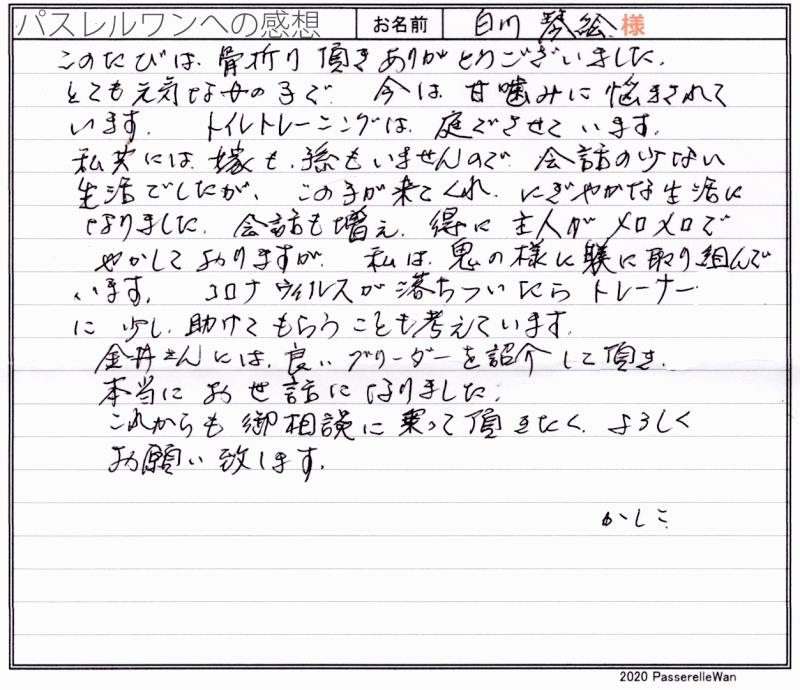 パスレルワンへの感想 お名前 白川 琴絵 様
このたびは、骨折り頂きありがとうございました。
とても元気な女の子で、今は、甘噛みに悩まされて
います。 トイレトレーニングは、庭でさせています。
私共には、嫁も、孫もいませんので、会話の少ない
生活でしたが、この子が来てくれ、にぎやかな生活に
なりました。会話も増え、得に主人がメロメロで
やかしておりますが、私は、鬼の様に躾に取り組んで
います。 コロナウィルスが落ちついたらトレーナー
に少し、助けてもらうことも考えています。
金井さんには、良いブリーダーを紹介して頂き、
本当にお世話になりました。
これからも御相談に乗って頂きたく、よろしく
お願い致します。
かしこ
2020 PasserelleWan